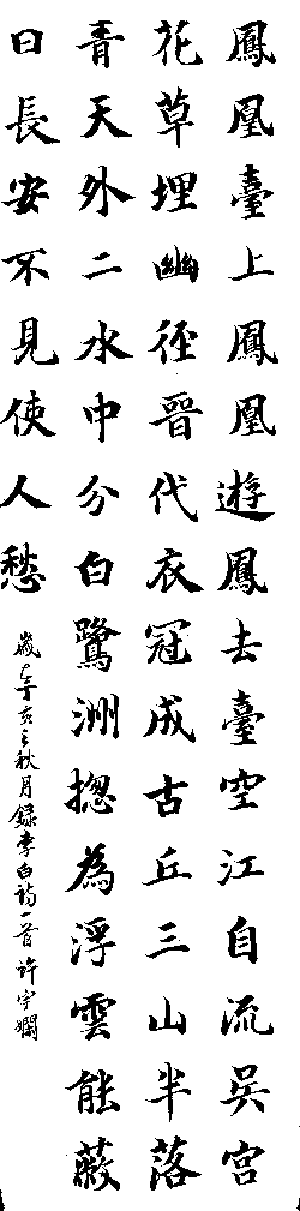 鳳凰臺上鳳凰遊鳳去臺空江自流吳宮
花草埋幽徑晉代衣冠成古丘三山半落
青天外二水中分白鷺洲摠為浮雲能蔽
日長安不見使人愁
歲在辛亥之秋月錄李白詩一首 許宇嫻